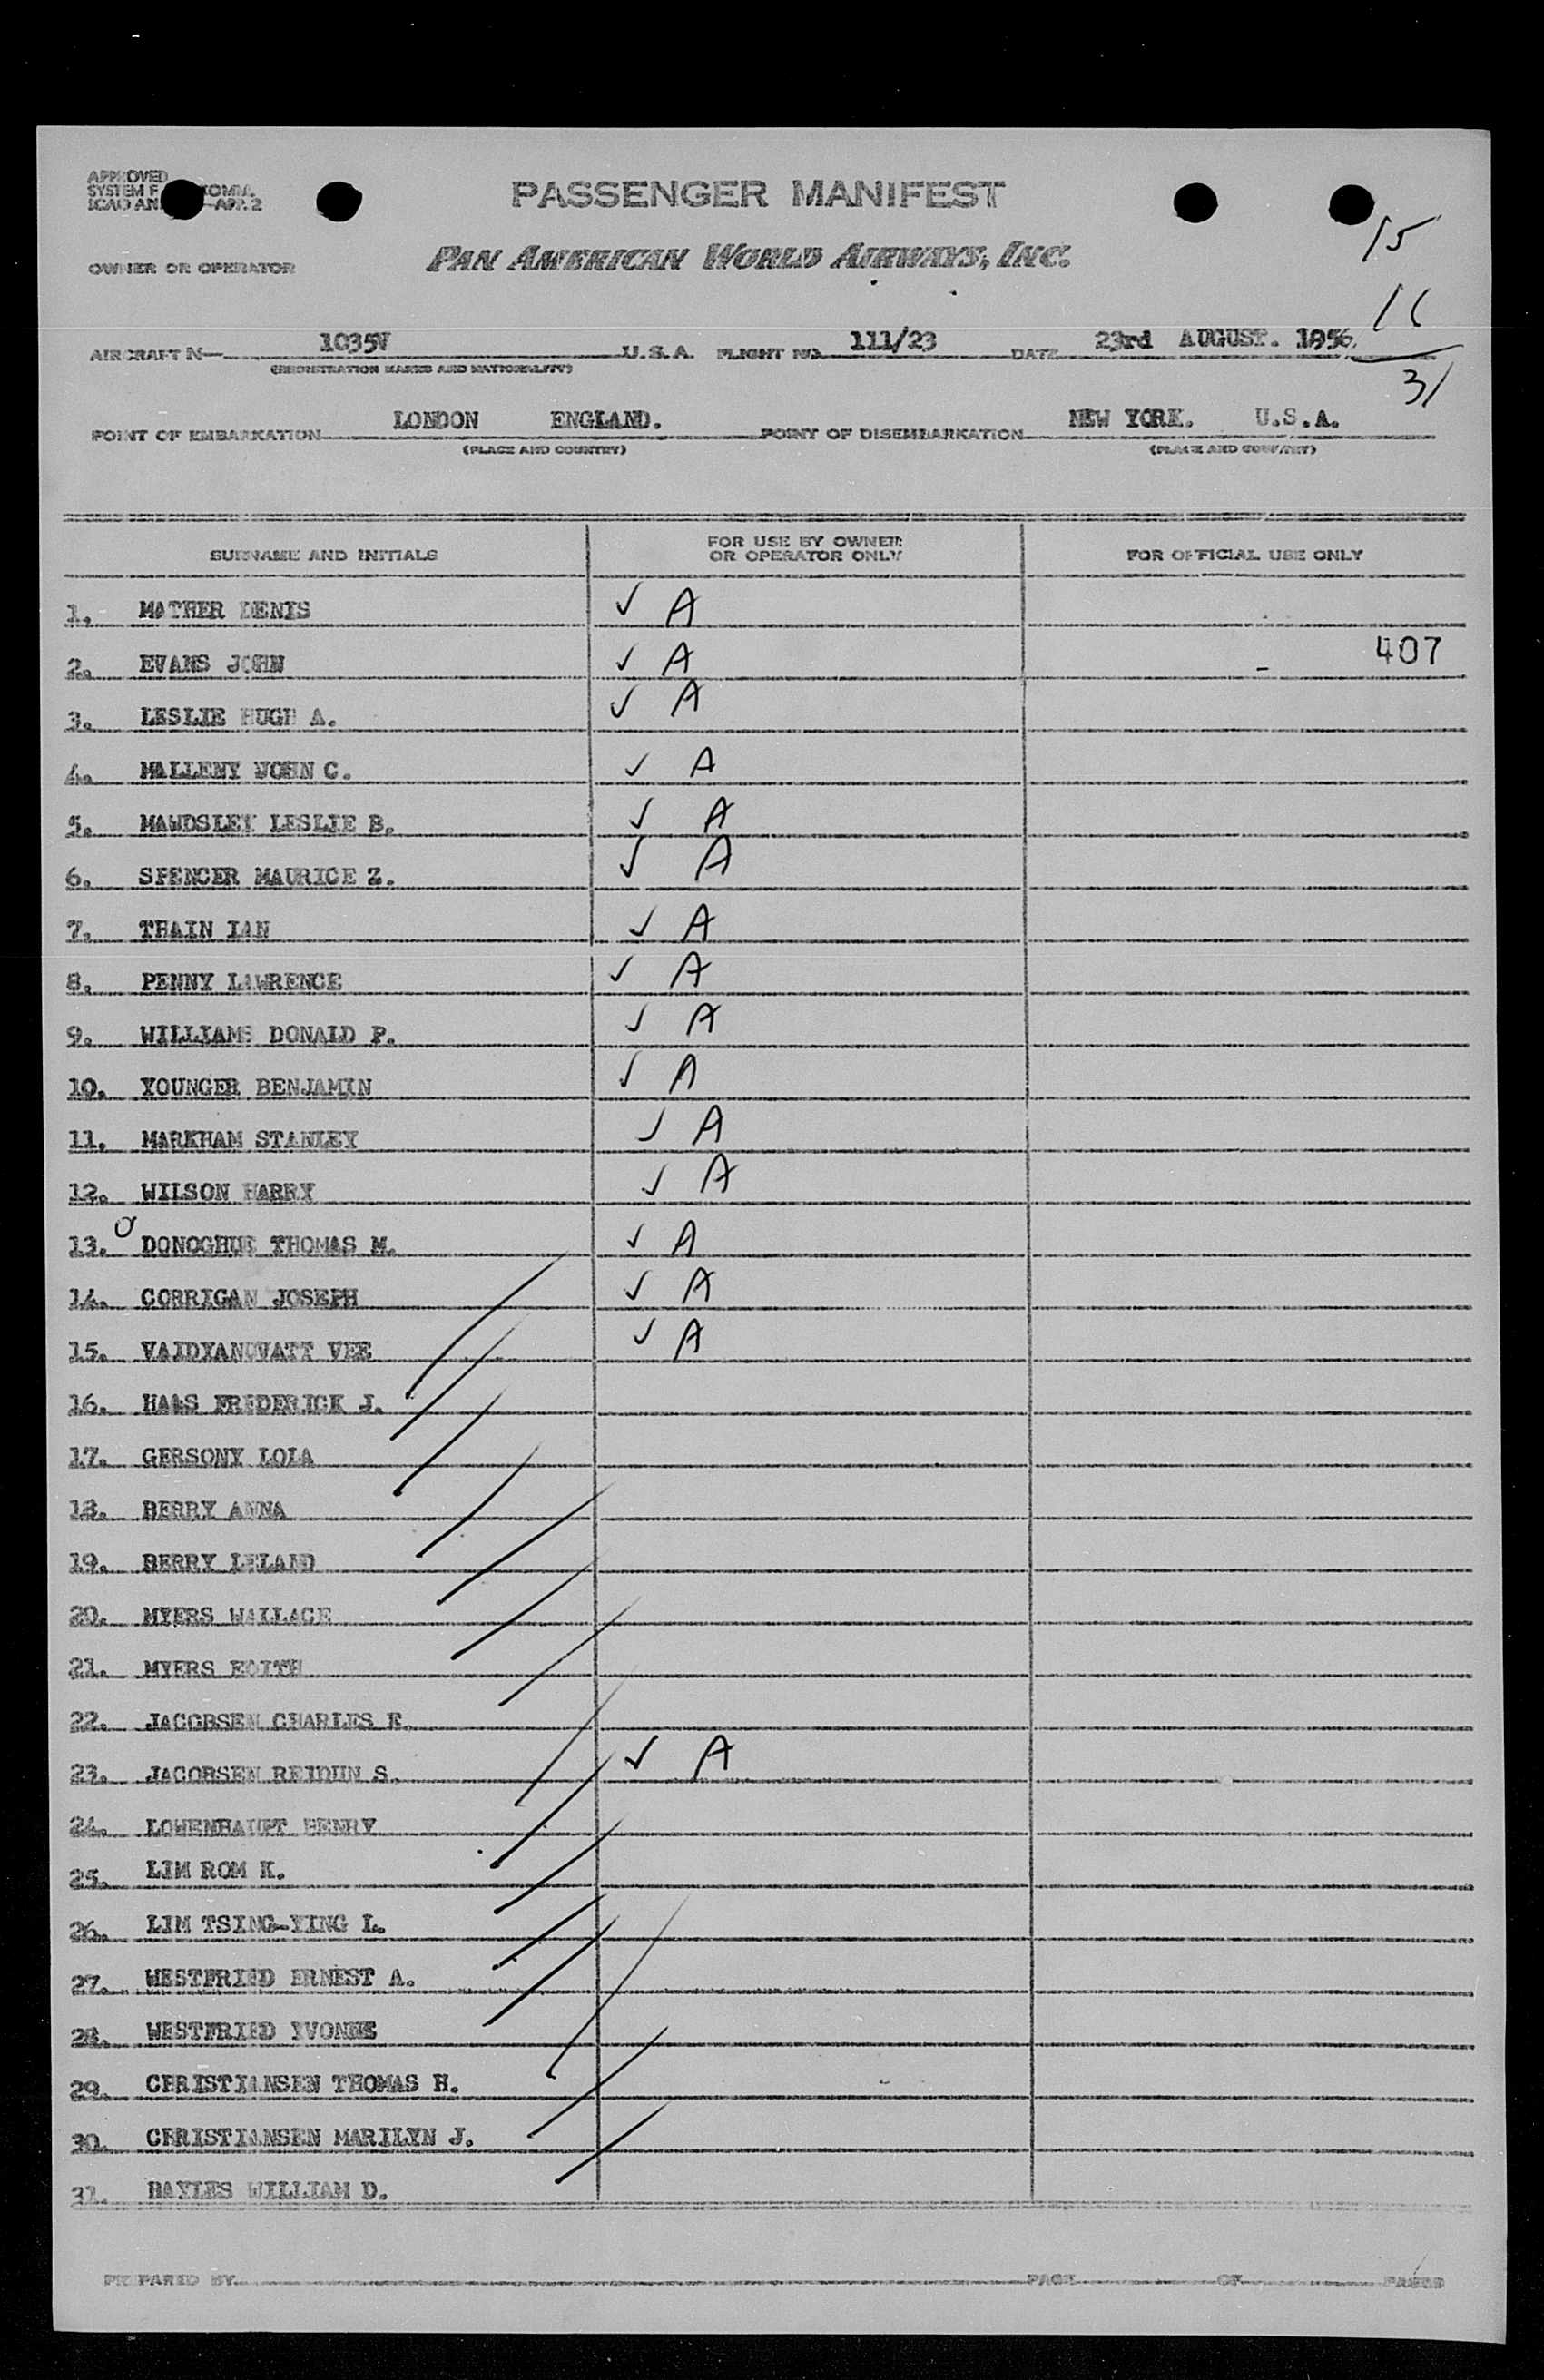 APPROVED
SYSTEM F KOMM.
ICAO AN APP. 2
PASSENGER MANIFEST
15
OWNER OR OPERATOR PAN AMERICAN WORLD AIRWAYS, INC.
16
AIRCRAFT N— 1035V U.S.A. FLIGHT NO. 111/23 DATE 23rd AUGUST. 1956.
(REGISTRATION MARKS AND NATIONALITY)
31
POINT OF EMBARKATION LONDON ENGLAND. POINT OF DISEMBARKATION NEW YORK. U.S.A.
(PLACE AND COUNTRY) (PLACE AND COUNTRY)
SURNAME AND INITIALS FOR USE BY OWNER OR OPERATOR ONLY FOR OFFICIAL USE ONLY
1. MATHER DENIS ✓ A
2. EVANS JOHN ✓ A 407
3. LESLIE HUGH A. ✓ A
4. MALLENY JOHN C. ✓ A
5. MAWDSLEY LESLIE B. ✓ A
6. SPENCER MAURICE Z. ✓ A
7. THAIN IAN ✓ A
8. PENNY LAWRENCE ✓ A
9. WILLIAMS DONALD P. ✓ A
10. YOUNGER BENJAMIN ✓ A
11. MARKHAM STANLEY ✓ A
12. WILSON HARRY ✓ A
13. O DONOGHUE THOMAS M. ✓ A
14. CORRIGAN JOSEPH ✓ A
15. VEE ✓ A
16. HAAS FREDERICK J.
17. GERSONY LOLA
18. BERRY ANNA
19. BERRY LELAND
20. MYERS WALLACE
21. MYERS EDITH
22. JACOBSEN CHARLES E.
23. JACOBSEN REIDUN S. ✓ A
24. LOWENHAUPT HENRY
25. LIM ROM K.
26. LIM TSING-YING L.
27. WESTFRIED ERNEST A.
28. WESTFRIED YVONNE
29. CHRISTIANSEN THOMAS H.
30. CHRISTIANSEN MARILYN J.
31. BAYLES WILLIAM D.
PREPARED BY PAGE OF PAGES